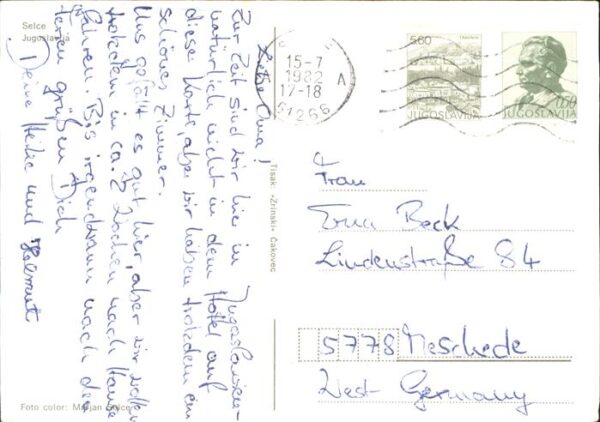 Selce
Jugoslavija
Liebe Oma!
Zur Zeit sind wir hie in Jugoslawien
natürlich nicht in dem Hotel auf
diese Karte, aber wir haben trotzdem ein
schönes Zimmer.
Uns gefällt es gut hier, aber wir wollen
trotzdem in ca. 2 Wochen nach Hause
fahren. Bis irgendwann nach den
Ferien grüßen Dich
Deine Heike und Helmut
Foto color: Marjan
Tisak: »Zrinski« Čakovec
15-7
1982 A
17-18
51266
5.60
JUGOSLAVIJA
0.50
JUGOSLAVIJA
Frau
Erna Beck
Lindenstraße 84
5778 Meschede
West Germany